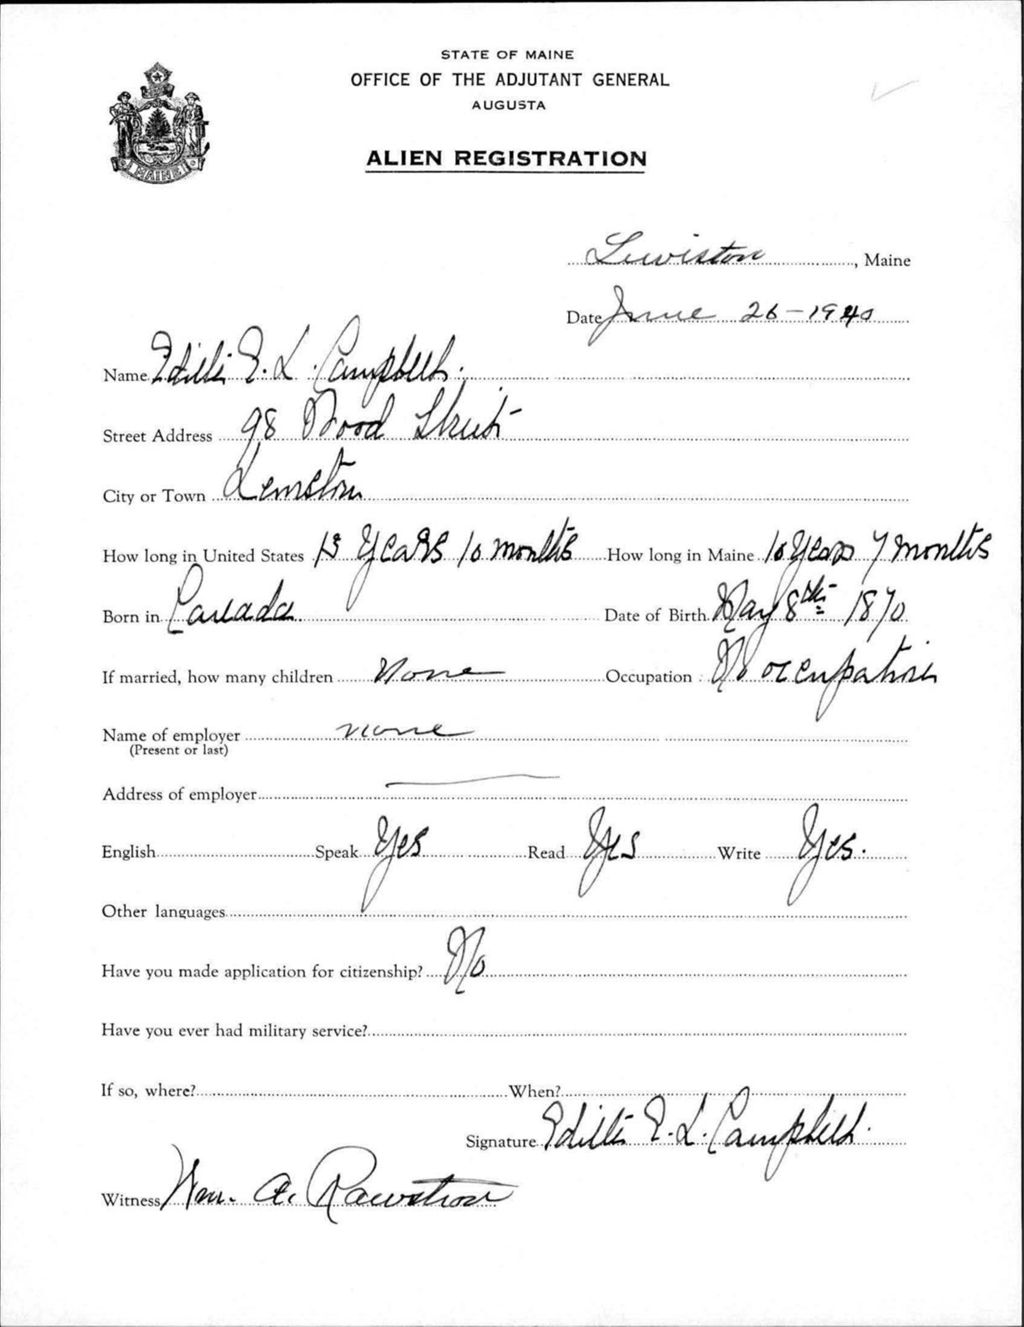 STATE OF MAINE
OFFICE OF THE ADJUTANT GENERAL
AUGUSTA
ALIEN REGISTRATION
MAINE
Lewiston, Maine
Date June 26-1940
Name Edith E. L. Campbell.
Street Address 98 Wood Street
City or Town Lewiston
How long in United States 13 Years 10 months How long in Maine 10 years 7 months
Born in Canada. Date of Birth May 8th 1870
If married, how many children None Occupation No occupation
Name of employer none
(Present or last)
Address of employer
English Speak Yes Read Yes Write Yes.
Other languages
Have you made application for citizenship? No
Have you ever had military service?
If so, where? When?
Signature Edith E. L. Campbell.
Witness Wm. A. Rawstron